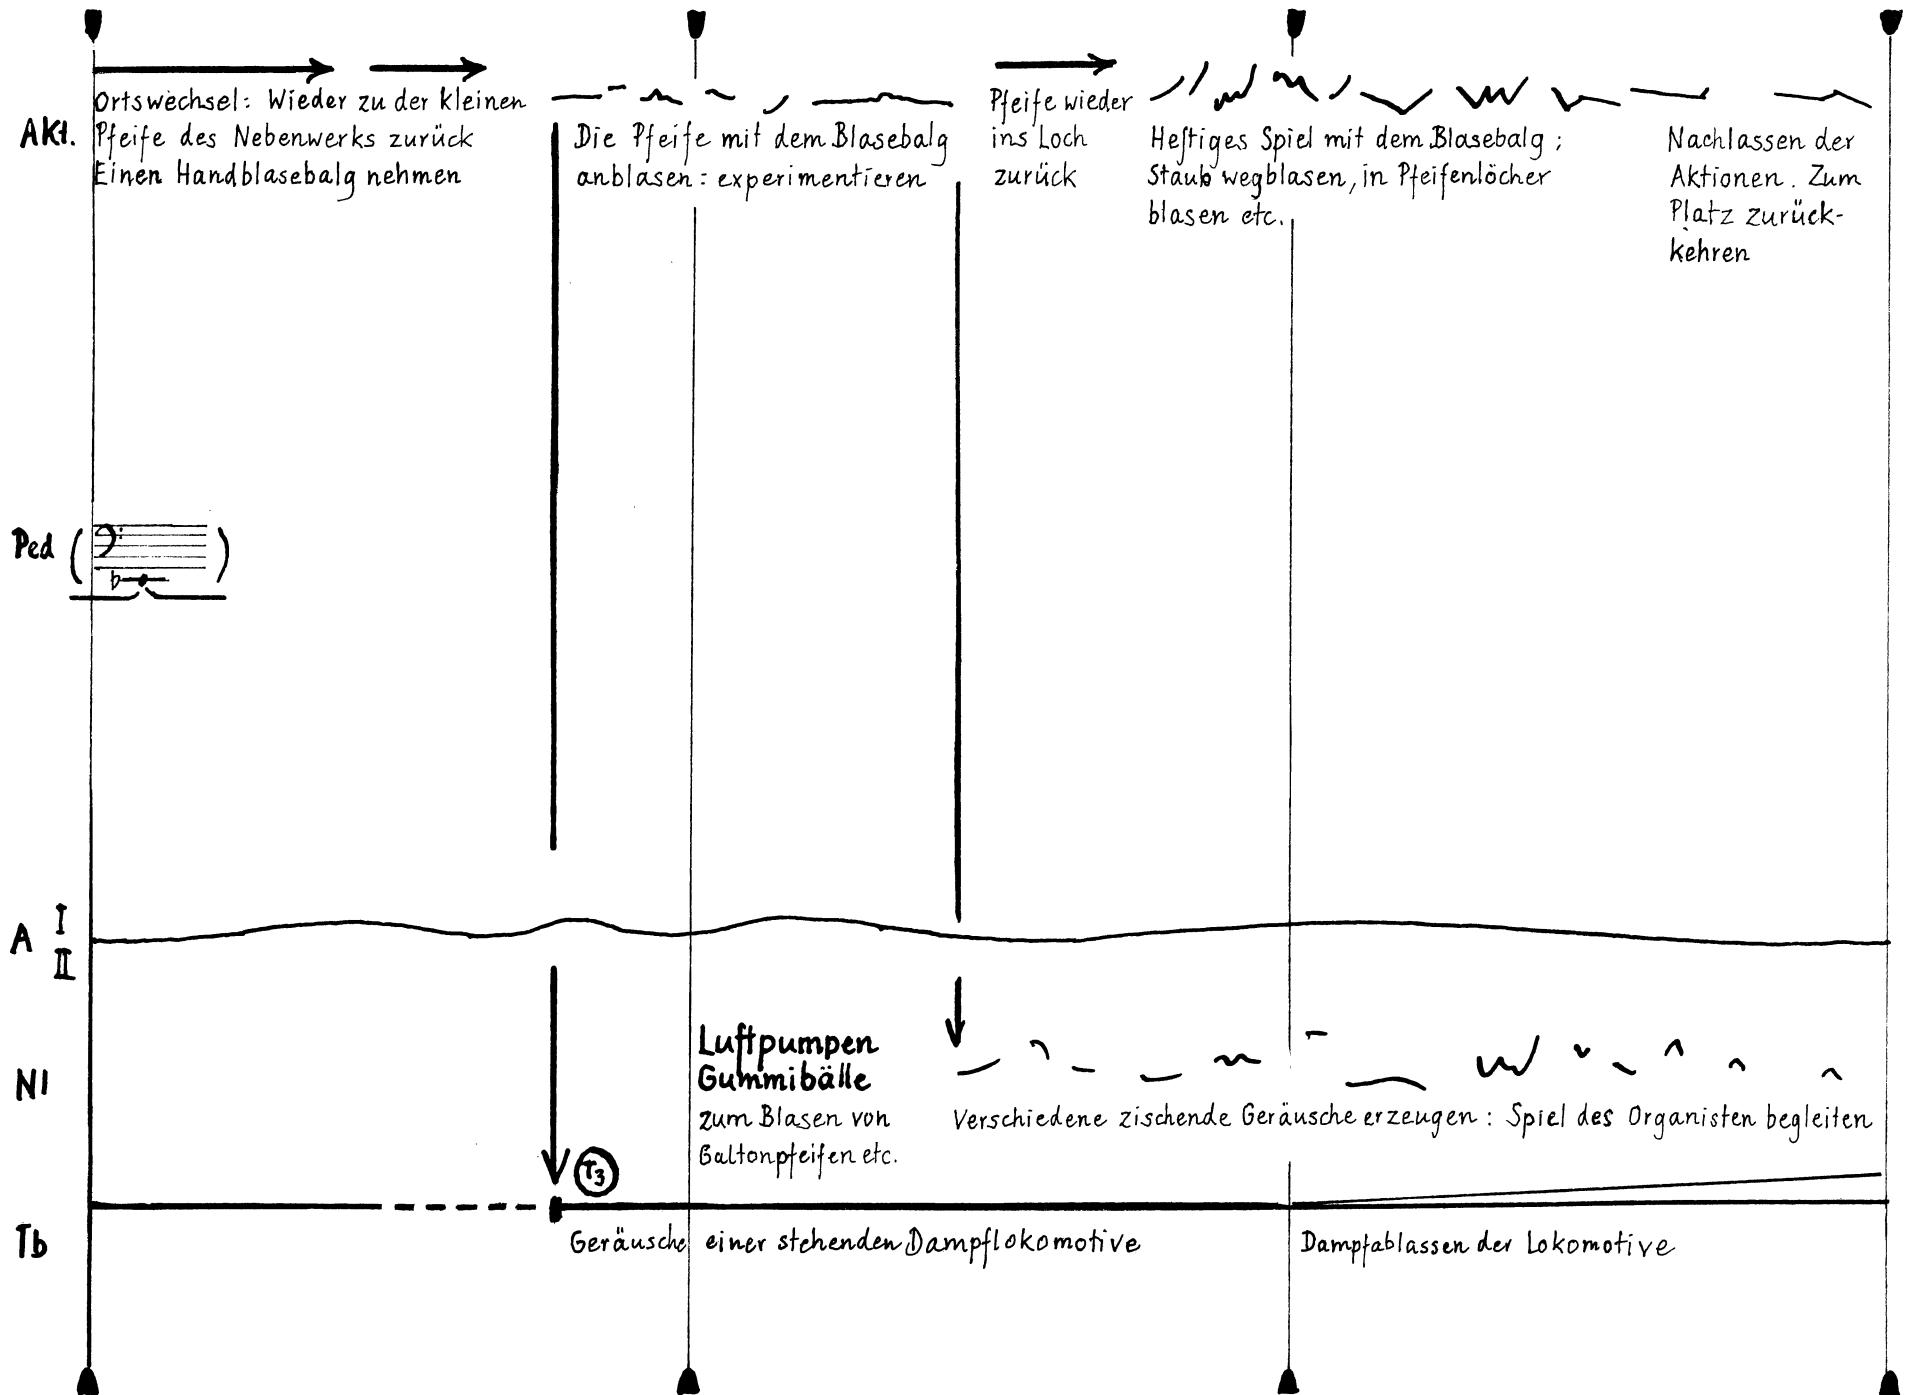 Akt.
Ortswechsel: Wieder zu der kleinen
Pfeife des Nebenwerks zurück
Einen Handblasebalg nehmen
Die Pfeife mit dem Blasebalg
anblasen: experimentieren
Pfeife wieder
ins Loch
zurück
Heftiges Spiel mit dem Blasebalg;
Staub wegblasen, in Pfeifenlöcher
blasen etc.
Nachlassen der
Aktionen. Zum
Platz zurück-
kehren
Ped
A I
II
NI
Luftpumpen
Gummibälle
zum Blasen von
Galtonpfeifen etc.
Verschiedene zischende Geräusche erzeugen: Spiel des Organisten begleiten
T3
Tb
Geräusche einer stehenden Dampflokomotive
Dampfablassen der Lokomotive